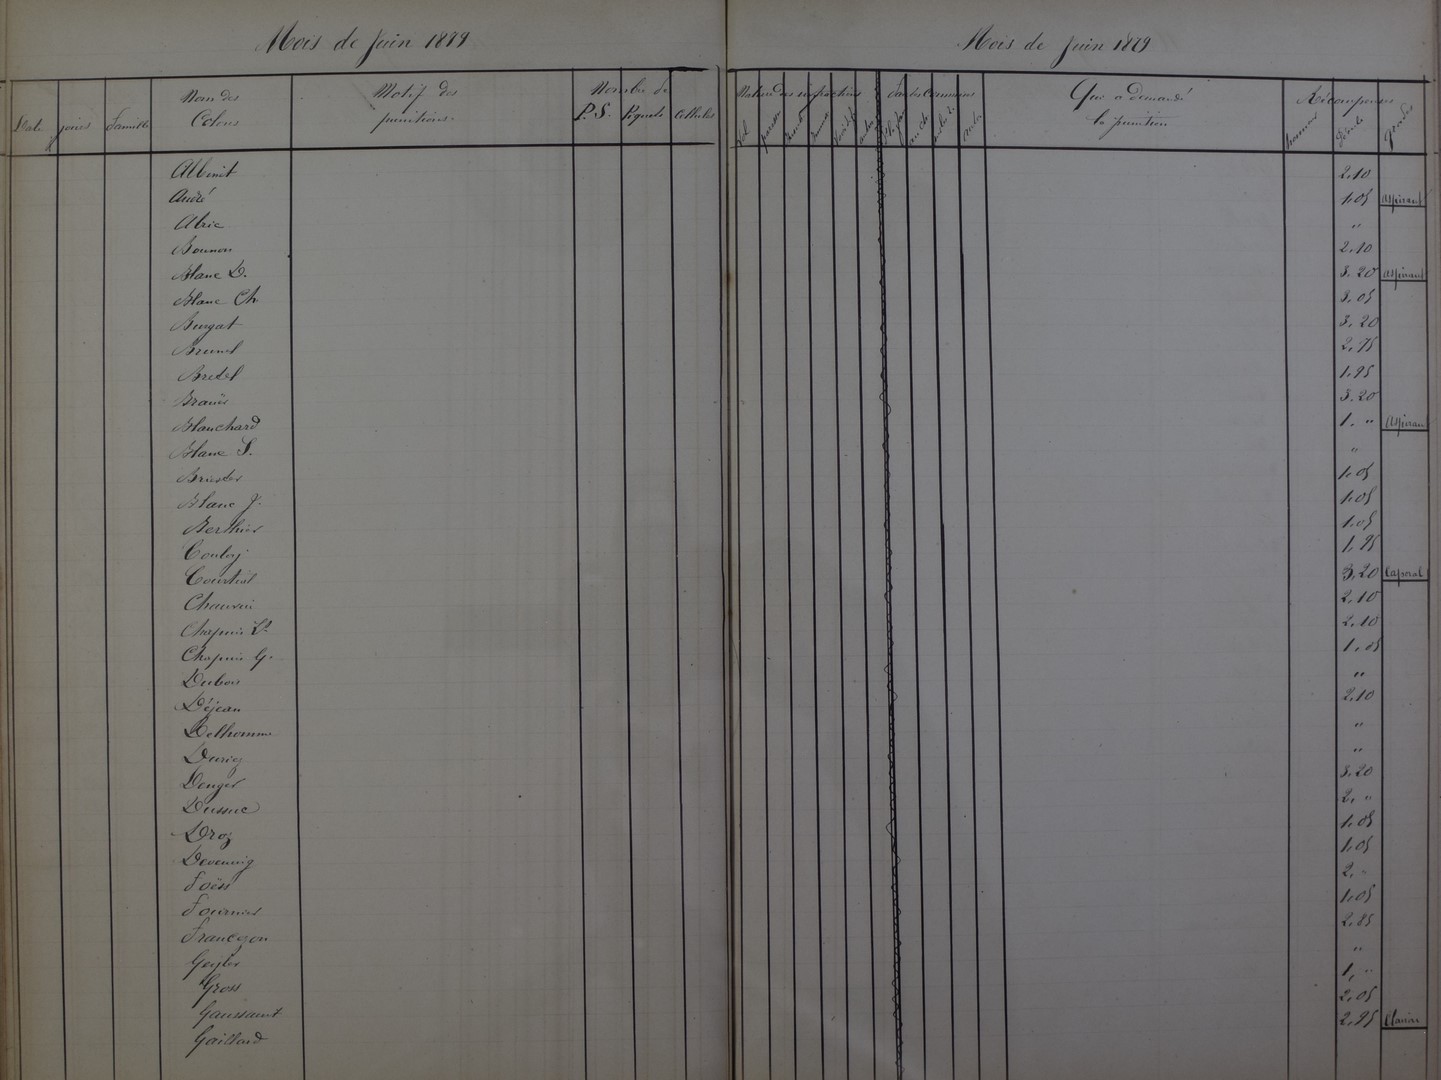 Mois de Juin 1879
Mois de Juin 1879
Date jours Famille Nom des Colons Motif des punitions Nombre de P.S. Piquets Cellules
Nature des infractions Qui a demandé la punition Récompenses grades
Albenit 2,10
André 1,05 aspirant
Alric "
Bounon 2,10
Blanc D. 3,20 aspirant
Blanc Ch. 3,05
Burgat 3,20
Brunel 2,75
Bredel 1,95
3,20
Blanchard 1, " aspirant
Blanc S. "
1,05
Blanc J. 1,05
Berthier 1,05
1,95
Courtiol 3,20 Caporal
Chauvin 2,10
Chapuis Ls 2,10
Chapuis G. 1,05
Dubois "
Déjean 2,10
Delhomme "
"
Denger 3,20
Dussuc 2, "
Droz 1,05
1,05
Foëss 2, "
Fournier 1,05
Françon 2,85
Geyler "
Gross 1, "
Gaussaint 2,05
Gaillard 2,95 Clairon